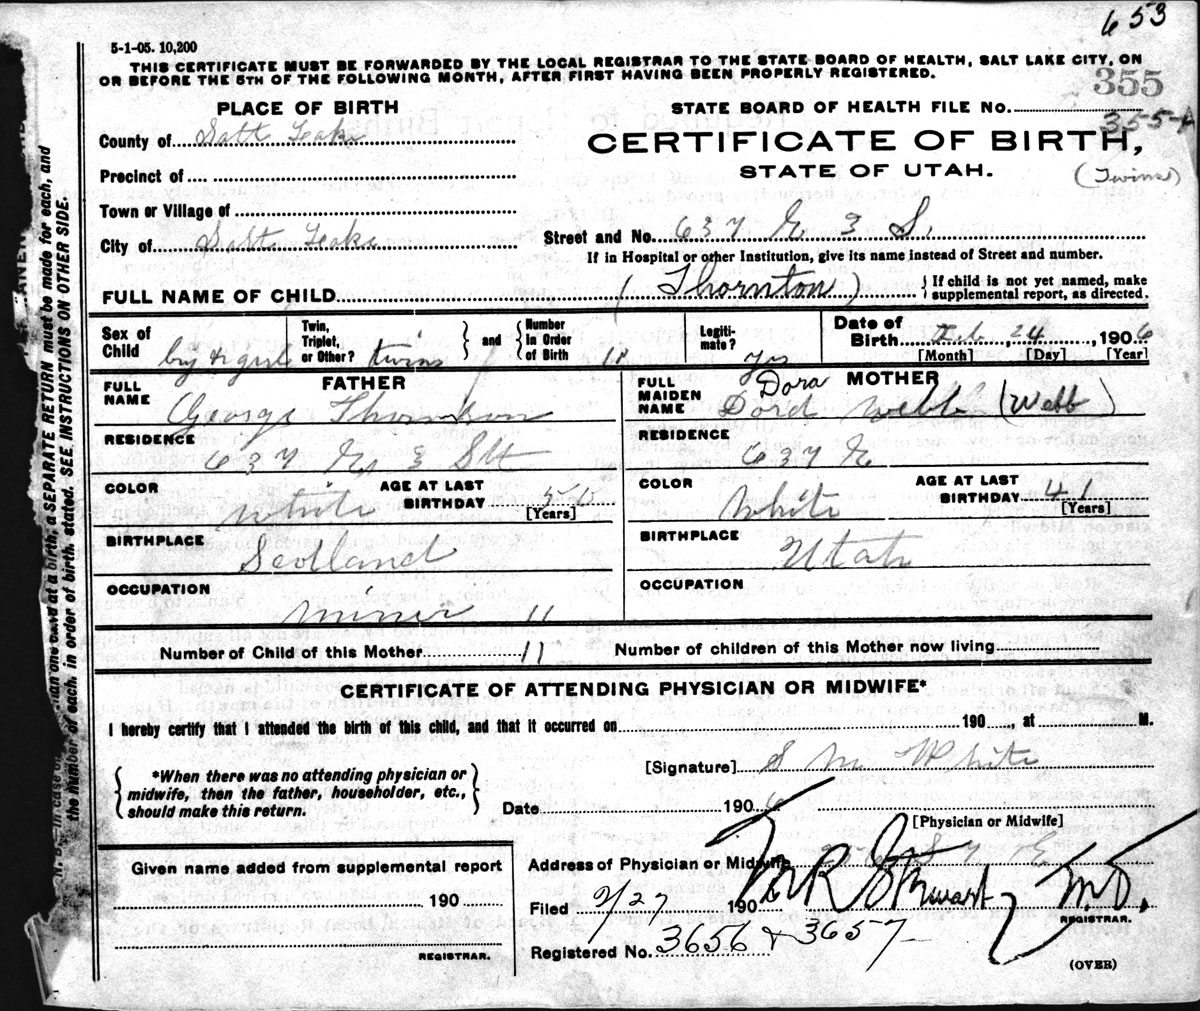 653
5-1-05. 10,200
THIS CERTIFICATE MUST BE FORWARDED BY THE LOCAL REGISTRAR TO THE STATE BOARD OF HEALTH, SALT LAKE CITY, ON
OR BEFORE THE 5TH OF THE FOLLOWING MONTH, AFTER FIRST HAVING BEEN PROPERLY REGISTERED.
355
PLACE OF BIRTH
STATE BOARD OF HEALTH FILE NO.
355-A
County of Salt Leake
CERTIFICATE OF BIRTH,
STATE OF UTAH.
(Twins)
Precinct of
Town or Village of
City of Salt Leake
Street and No. 637 E 3 S.
If in Hospital or other Institution, give its name instead of Street and number.
FULL NAME OF CHILD (Thornton) } If child is not yet named, make
supplemental report, as directed.
Sex of Child boy & girl
Twin, Triplet, or Other? twins } and { Number In Order of Birth 11
Legiti- mate? yes
Date of Birth Feb, 24, 1906
[Month] [Day] [Year]
FATHER
FULL NAME George Thornton
MOTHER
FULL MAIDEN NAME Dord Dora Webb (Webb)
RESIDENCE 637 E 3 St
RESIDENCE 637 E
COLOR White AGE AT LAST BIRTHDAY [Years]
COLOR White AGE AT LAST BIRTHDAY 41 [Years]
BIRTHPLACE Scotland
BIRTHPLACE Utah
OCCUPATION miner 11
OCCUPATION
Number of Child of this Mother 11 Number of children of this Mother now living
CERTIFICATE OF ATTENDING PHYSICIAN OR MIDWIFE*
I hereby certify that I attended the birth of this child, and that it occurred on 190 , at M.
{ *When there was no attending physician or
midwife, then the father, householder, etc.,
should make this return. }
[Signature] S M White
Date 1906
[Physician or Midwife]
Given name added from supplemental report
190
REGISTRAR.
Address of Physician or Midwife
Filed 2/27 1906 M R Stewart, M.D.
REGISTRAR.
Registered No. 3656 & 3657
(OVER)
a SEPARATE RETURN must be made for each, and
the number of each, in order of birth, stated. SEE INSTRUCTIONS ON OTHER SIDE.